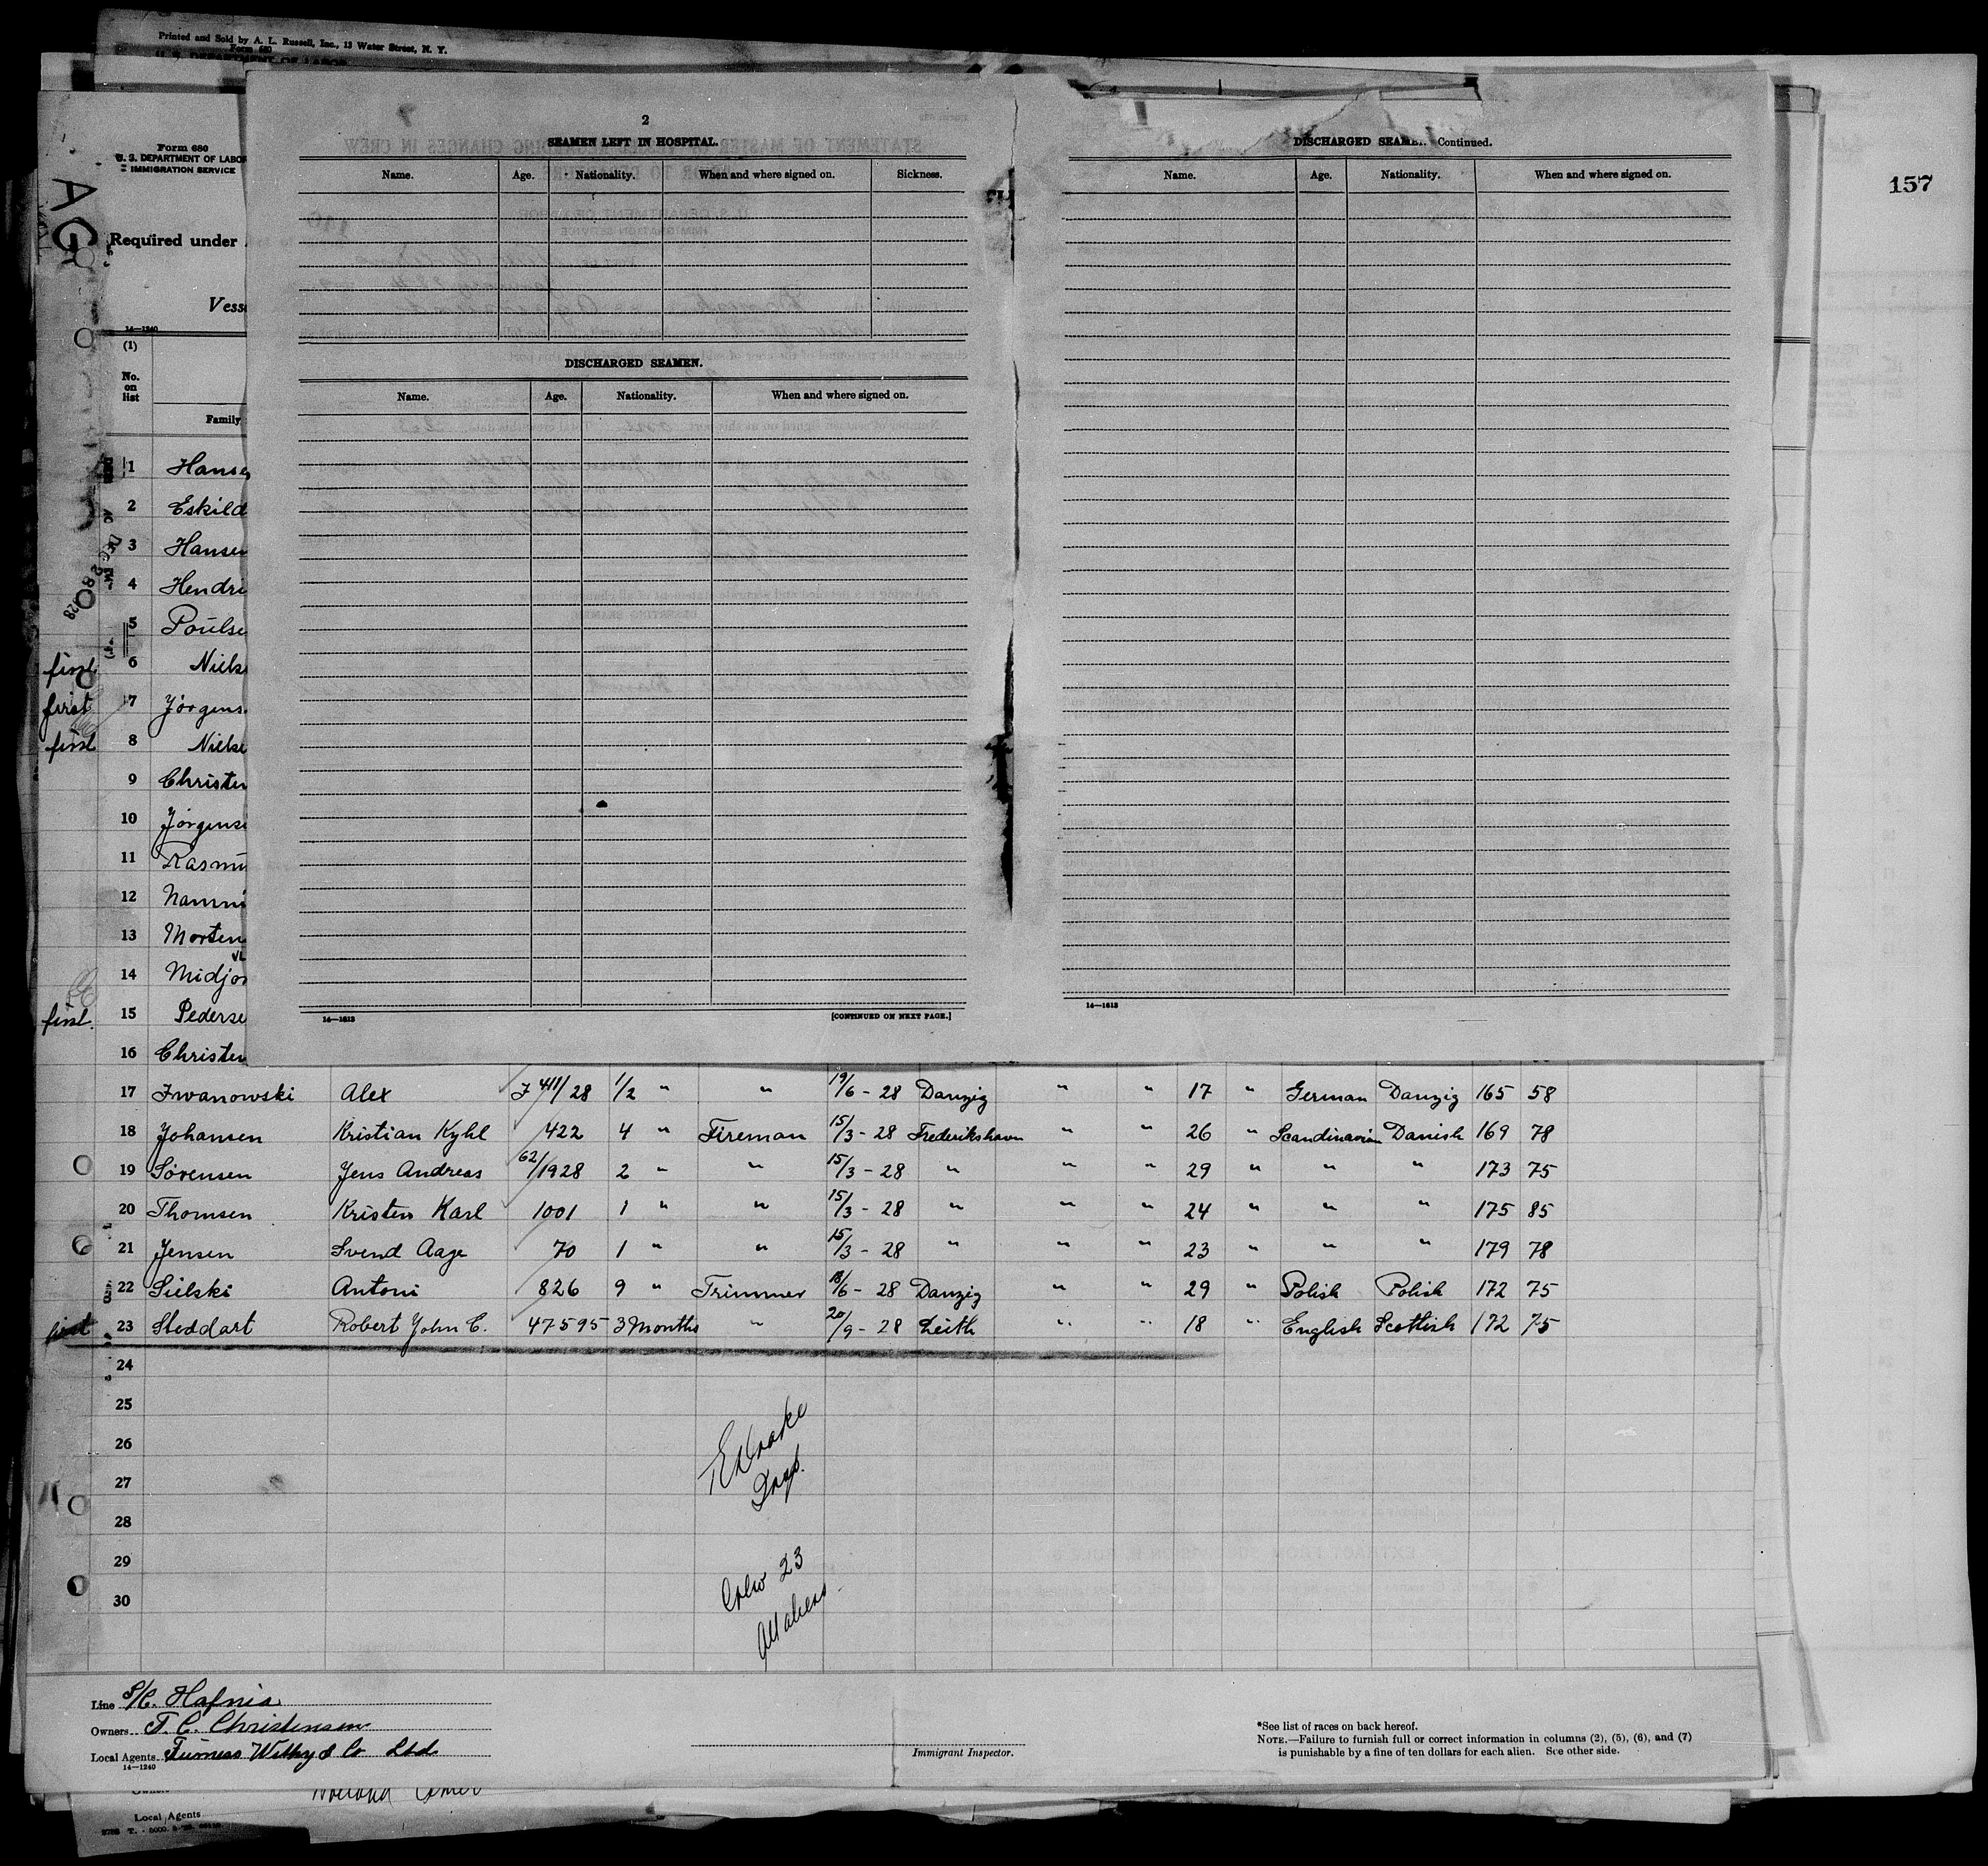 Printed and Sold by A. L. Russell, Inc., 13 Water Street, N. Y.
Form 680
U. S. DEPARTMENT OF LABOR
Form 680
U. S. DEPARTMENT OF LABOR
IMMIGRATION SERVICE
Required under
Vess
14—1240
(1)
No. on list
Family
157
2
SEAMEN LEFT IN HOSPITAL.
Name. Age. Nationality. When and where signed on. Sickness.
DISCHARGED SEAMEN.
Name. Age. Nationality. When and where signed on.
14—1613 [CONTINUED ON NEXT PAGE.]
DISCHARGED SEAMEN. Continued.
Name. Age. Nationality. When and where signed on.
14—1613
1 Hanse
2 Eskild
3 Hansen
4 Hendri
5 Poulse
first 6 Niels
first 7 Jörgens
first 8 Nielse
9 Christen
10 Jörgense
11 Rasmu
12 Nammi
13 Morten
14 Midjor
first 15 Pederse
16 Christen
17 Iwanowski Alex J 411/28 1/2 " " 19/6 - 28 Danzig " " 17 " German Danzig 165 58
18 Johansen Kristian Kyhl 422 4 " Fireman 15/3 - 28 Frederikshavn " " 26 " Scandinavian Danish 169 78
19 Sörensen Jens Andreas 62/1928 2 " " 15/3 - 28 " " " 29 " " " 173 75
20 Thomsen Kristen Karl 1001 1 " " 15/3 - 28 " " " 24 " " " 175 85
21 Jensen Svend Aage 70 1 " " 15/3 - 28 " " " 23 " " " 179 78
22 Sielski Antoni 826 9 " Trimmer 18/6 - 28 Danzig " " 29 " Polish Polish 172 75
first 23 Steddart Robert John C. 47595 3 Months " 20/9 - 28 Leith " " 18 " English Scottish 172 75
24
25
26
27
28
29
30
E Drake
Insp.
Crew 23
All aliens
Line S/C. Hafnia
Owners T. C. Christensen
Local Agents Furness Withy & Co Ltd
14—1240
Immigrant Inspector.
*See list of races on back hereof.
NOTE.—Failure to furnish full or correct information in columns (2), (5), (6), and (7)
is punishable by a fine of ten dollars for each alien. See other side.
Owners
Local Agents